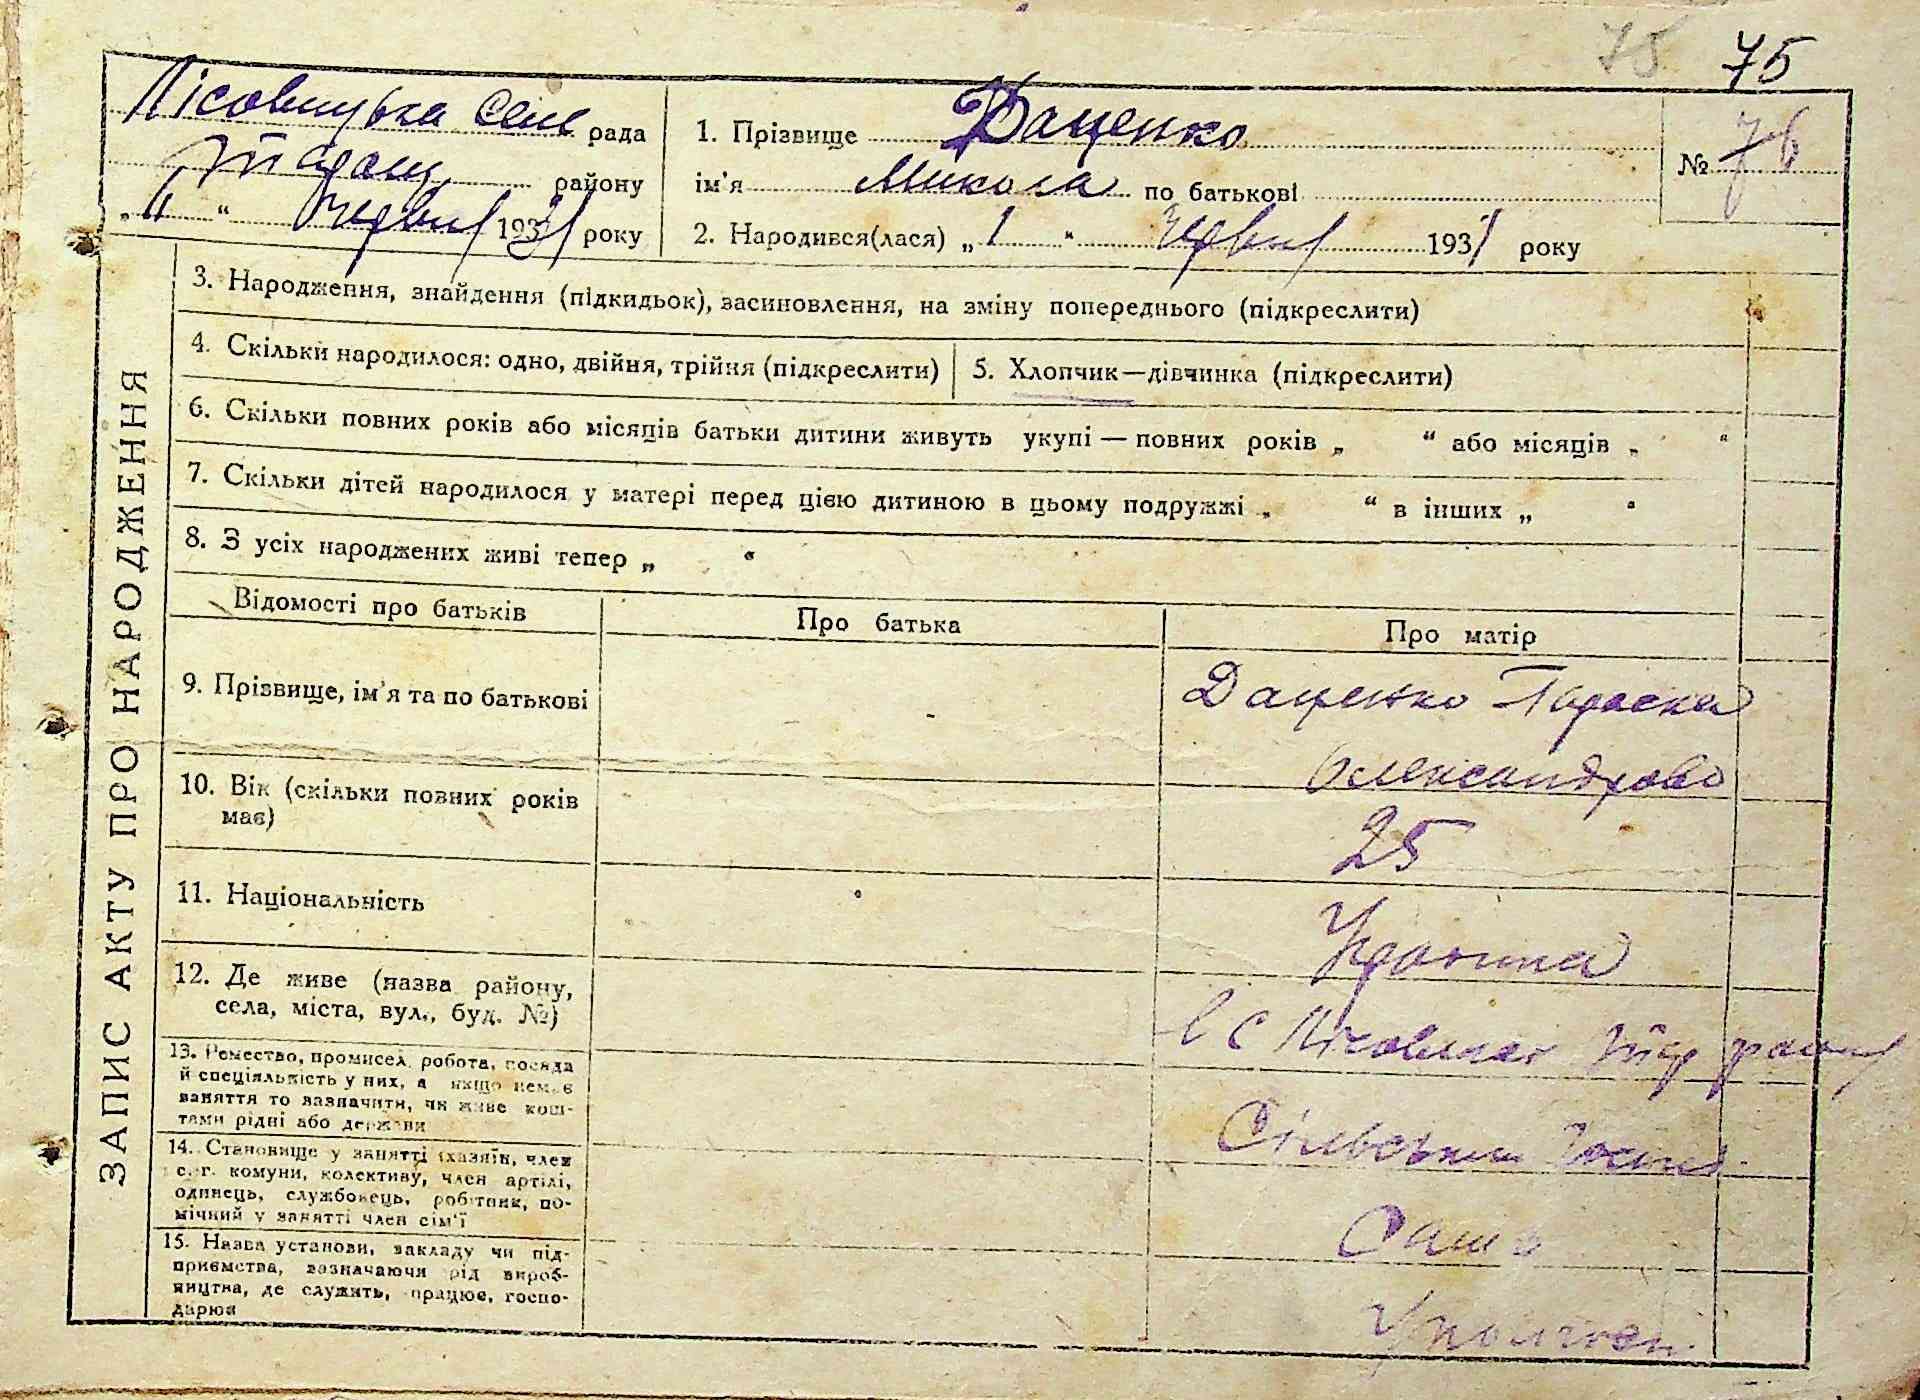 75 75
Лісовицька Сел рада
Таращ району
„11“ Червня 1931 року
1. Прізвище Даценко
ім'я Микола по батькові
2. Народився(лася) „1“ Червня 1931 року
№ 76
ЗАПИС АКТУ ПРО НАРОДЖЕННЯ
3. Народження, знайдення (підкидьок), засиновлення, на зміну попереднього (підкреслити)
4. Скільки народилося: одно, двійня, трійня (підкреслити)
5. Хлопчик—дівчинка (підкреслити)
6. Скільки повних років або місяців батьки дитини живуть укупі — повних років „ “ або місяців „ “
7. Скільки дітей народилося у матері перед цією дитиною в цьому подружжі „ “ в інших „ “
8. З усіх народжених живі тепер „ “
Відомості про батьків
Про батька
Про матір
9. Прізвище, ім'я та по батькові
Даценко Параска
Олександрова
10. Вік (скільки повних років
має)
25
11. Національність
Українка
12. Де живе (назва району,
села, міста, вул., буд. №)
с Тар району
13. Ремество, промисел, робота, посада
й спеціяльність у них, а якщо немає
заняття то зазначити, чи живе кош-
тами рідні або держави
Сільське
14. Становище у занятті (хазяїн, член
с.-г. комуни, колективу, член артілі,
одинець, службовець, робітник, по-
мічний у занятті член сім'ї
15. Назва установи, закладу чи під-
приємства, зазначаючи рід вироб-
ництва, де служить, працює, госпо-
дарює